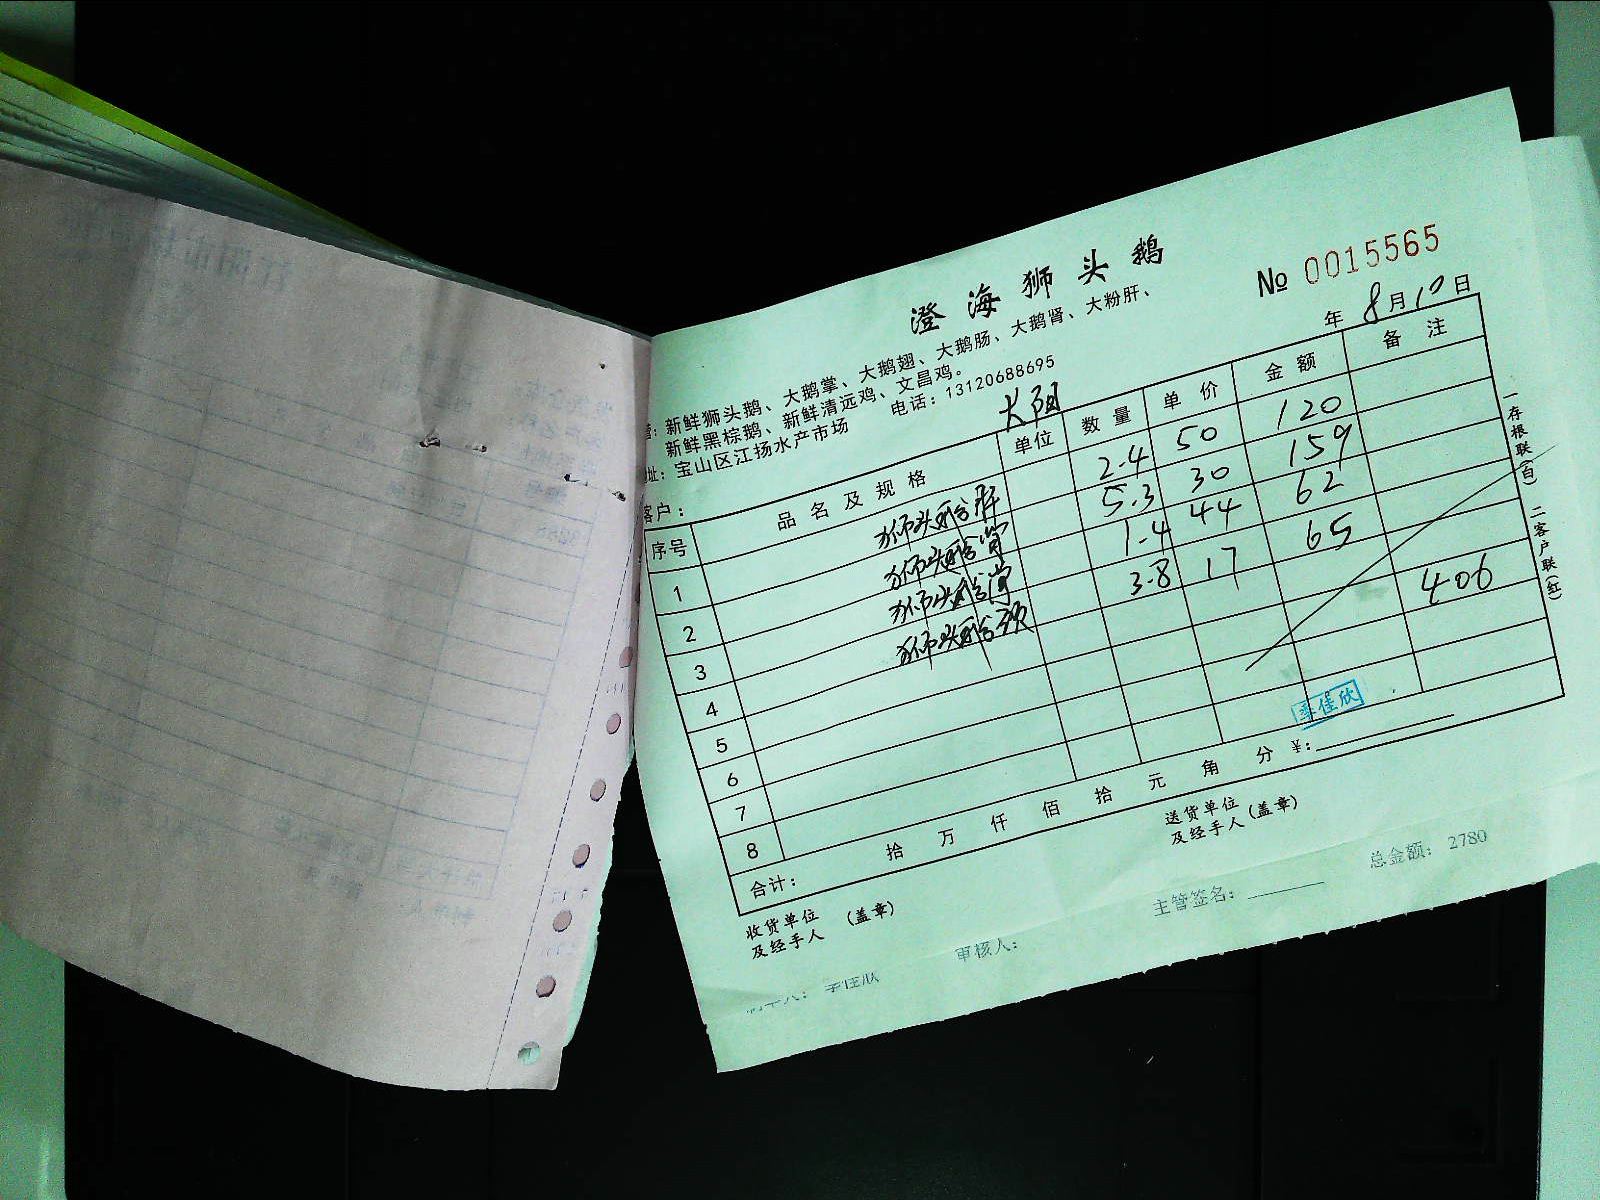 澄海狮头鹅
№ 0015565
营：新鲜狮头鹅、大鹅掌、大鹅翅、大鹅肠、大鹅肾、大粉肝、
新鲜黑棕鹅、新鲜清远鸡、文昌鸡。
地址：宝山区江扬水产市场 电话：13120688695
客户： 年 8月10日
序号 品名及规格 单位 数量 单价 金额 备注
1 狮头鹅肝 2.4 50 120
2 狮头鹅 5.3 30 159
3 狮头鹅 1.4 44 62
4 狮头鹅 3.8 17 65
5
6
7 406
8
合计： 拾 万 仟 佰 拾 元 角 分 ¥：
李佳欣
收货单位及经手人 （盖章） 送货单位及经手人（盖章）
一存根联（白） 二客户联（红）
李佳欣 审核人： 主管签名： 总金额： 2780